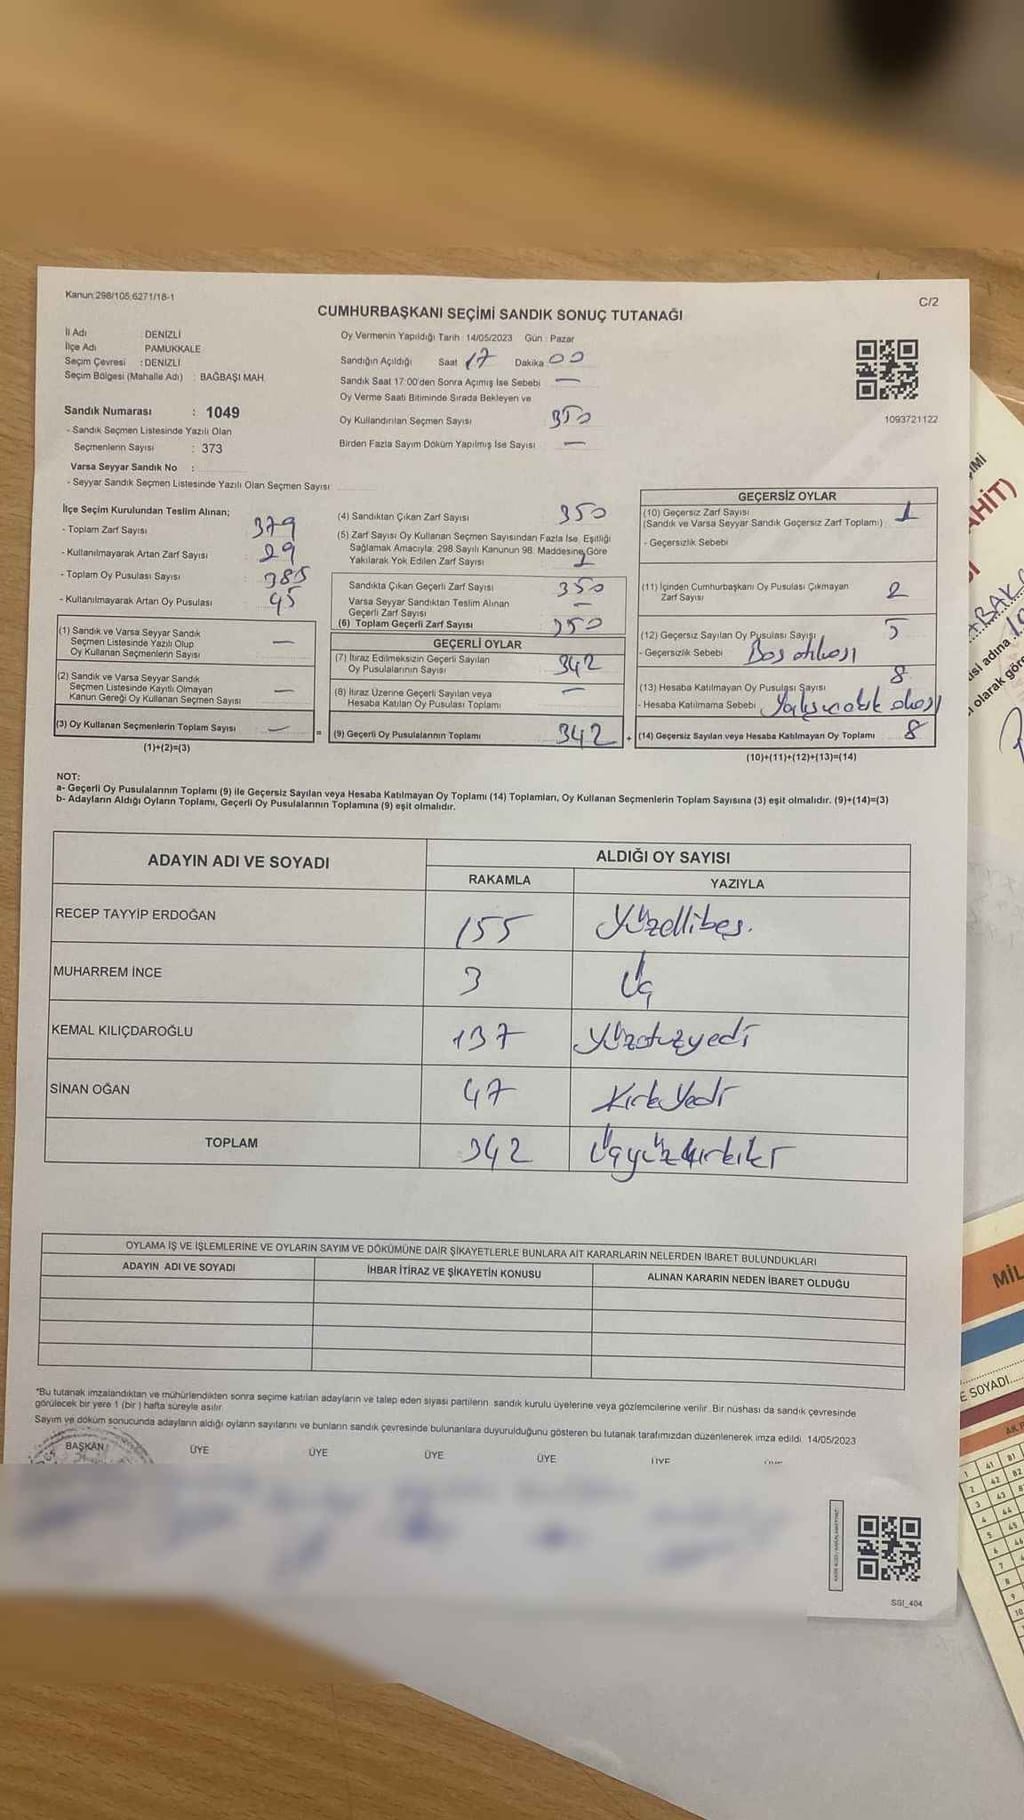 Kanun:298/105;6271/18-1
C/2
CUMHURBAŞKANI SEÇİMİ SANDIK SONUÇ TUTANAĞI
İl Adı DENİZLİ
İlçe Adı PAMUKKALE
Seçim Çevresi : DENİZLİ
Seçim Bölgesi (Mahalle Adı) : BAĞBAŞI MAH.
Sandık Numarası : 1049
- Sandık Seçmen Listesinde Yazılı Olan
Seçmenlerin Sayısı : 373
Varsa Seyyar Sandık No :
- Seyyar Sandık Seçmen Listesinde Yazılı Olan Seçmen Sayısı:
Oy Vermenin Yapıldığı Tarih 14/05/2023 Gün : Pazar
Sandığın Açıldığı Saat 17 Dakika 00
Sandık Saat 17:00'den Sonra Açımış İse Sebebi —
Oy Verme Saati Bitiminde Sırada Bekleyen ve
Oy Kullandırılan Seçmen Sayısı 350
Birden Fazla Sayım Döküm Yapılmış İse Sayısı —
1093721122
İlçe Seçim Kurulundan Teslim Alınan;
- Toplam Zarf Sayısı 379
- Kullanılmayarak Artan Zarf Sayısı : 29
- Toplam Oy Pusulası Sayısı : 385
- Kullanılmayarak Artan Oy Pusulası 45
(1) Sandık ve Varsa Seyyar Sandık
Seçmen Listesinde Yazılı Olup
Oy Kullanan Seçmenlerin Sayısı —
(2) Sandık ve Varsa Seyyar Sandık
Seçmen Listesinde Kayıtlı Olmayan
Kanun Gereği Oy Kullanan Seçmen Sayısı —
(3) Oy Kullanan Seçmenlerin Toplam Sayısı — =
(1)+(2)=(3)
(4) Sandıktan Çıkan Zarf Sayısı 350
(5) Zarf Sayısı Oy Kullanan Seçmen Sayısından Fazla İse, Eşitliği
Sağlamak Amacıyla; 298 Sayılı Kanunun 98. Maddesine Göre
Yakılarak Yok Edilen Zarf Sayısı 1
Sandıkta Çıkan Geçerli Zarf Sayısı 350
Varsa Seyyar Sandıktan Teslim Alınan
Geçerli Zarf Sayısı —
(6) Toplam Geçerli Zarf Sayısı 350
GEÇERLİ OYLAR
(7) İtiraz Edilmeksizin Geçerli Sayılan
Oy Pusulalarının Sayısı 342
(8) İtiraz Üzerine Geçerli Sayılan veya
Hesaba Katılan Oy Pusulası Toplamı —
(9) Geçerli Oy Pusulalarının Toplamı 342 +
GEÇERSİZ OYLAR
(10) Geçersiz Zarf Sayısı 1
(Sandık ve Varsa Seyyar Sandık Geçersiz Zarf Toplamı)
- Geçersizlik Sebebi
(11) İçinden Cumhurbaşkanı Oy Pusulası Çıkmayan
Zarf Sayısı 2
(12) Geçersiz Sayılan Oy Pusulası Sayısı 5
- Geçersizlik Sebebi Boş
(13) Hesaba Katılmayan Oy Pusulası Sayısı 8
- Hesaba Katılmama Sebebi
(14) Geçersiz Sayılan veya Hesaba Katılmayan Oy Toplamı 8
(10)+(11)+(12)+(13)=(14)
NOT:
a- Geçerli Oy Pusulalarının Toplamı (9) ile Geçersiz Sayılan veya Hesaba Katılmayan Oy Toplamı (14) Toplamları, Oy Kullanan Seçmenlerin Toplam Sayısına (3) eşit olmalıdır. (9)+(14)=(3)
b- Adayların Aldığı Oyların Toplamı, Geçerli Oy Pusulalarının Toplamına (9) eşit olmalıdır.
ADAYIN ADI VE SOYADI ALDIĞI OY SAYISI
RAKAMLA YAZIYLA
RECEP TAYYİP ERDOĞAN 155 Yüzellibeş.
MUHARREM İNCE 3 Üç
KEMAL KILIÇDAROĞLU 137 Yüzotuzyedi
SİNAN OĞAN 47 Kırkyedi
TOPLAM 342 Üçyüzkırkiki
OYLAMA İŞ VE İŞLEMLERİNE VE OYLARIN SAYIM VE DÖKÜMÜNE DAİR ŞİKAYETLERLE BUNLARA AİT KARARLARIN NELERDEN İBARET BULUNDUKLARI
ADAYIN ADI VE SOYADI İHBAR İTİRAZ VE ŞİKAYETİN KONUSU ALINAN KARARIN NEDEN İBARET OLDUĞU
*Bu tutanak imzalandıktan ve mühürlendikten sonra seçime katılan adayların ve talep eden siyasi partilerin sandık kurulu üyelerine veya gözlemcilerine verilir. Bir nüshası da sandık çevresinde
görülecek bir yere 1 (bir ) hafta süreyle asılır.
Sayım ve döküm sonucunda adayların aldığı oyların sayılarını ve bunların sandık çevresinde bulunanlara duyurulduğunu gösteren bu tutanak tarafımızdan düzenlenerek imza edildi. 14/05/2023
BAŞKAN ÜYE ÜYE ÜYE ÜYE ÜYE
SGI_404
AHİT)
isi adına
olarak gör
MİL
E SOYADI